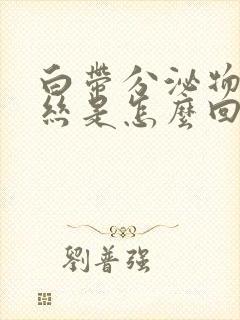 白帶分泌物
絲是怎麼回
劉普強